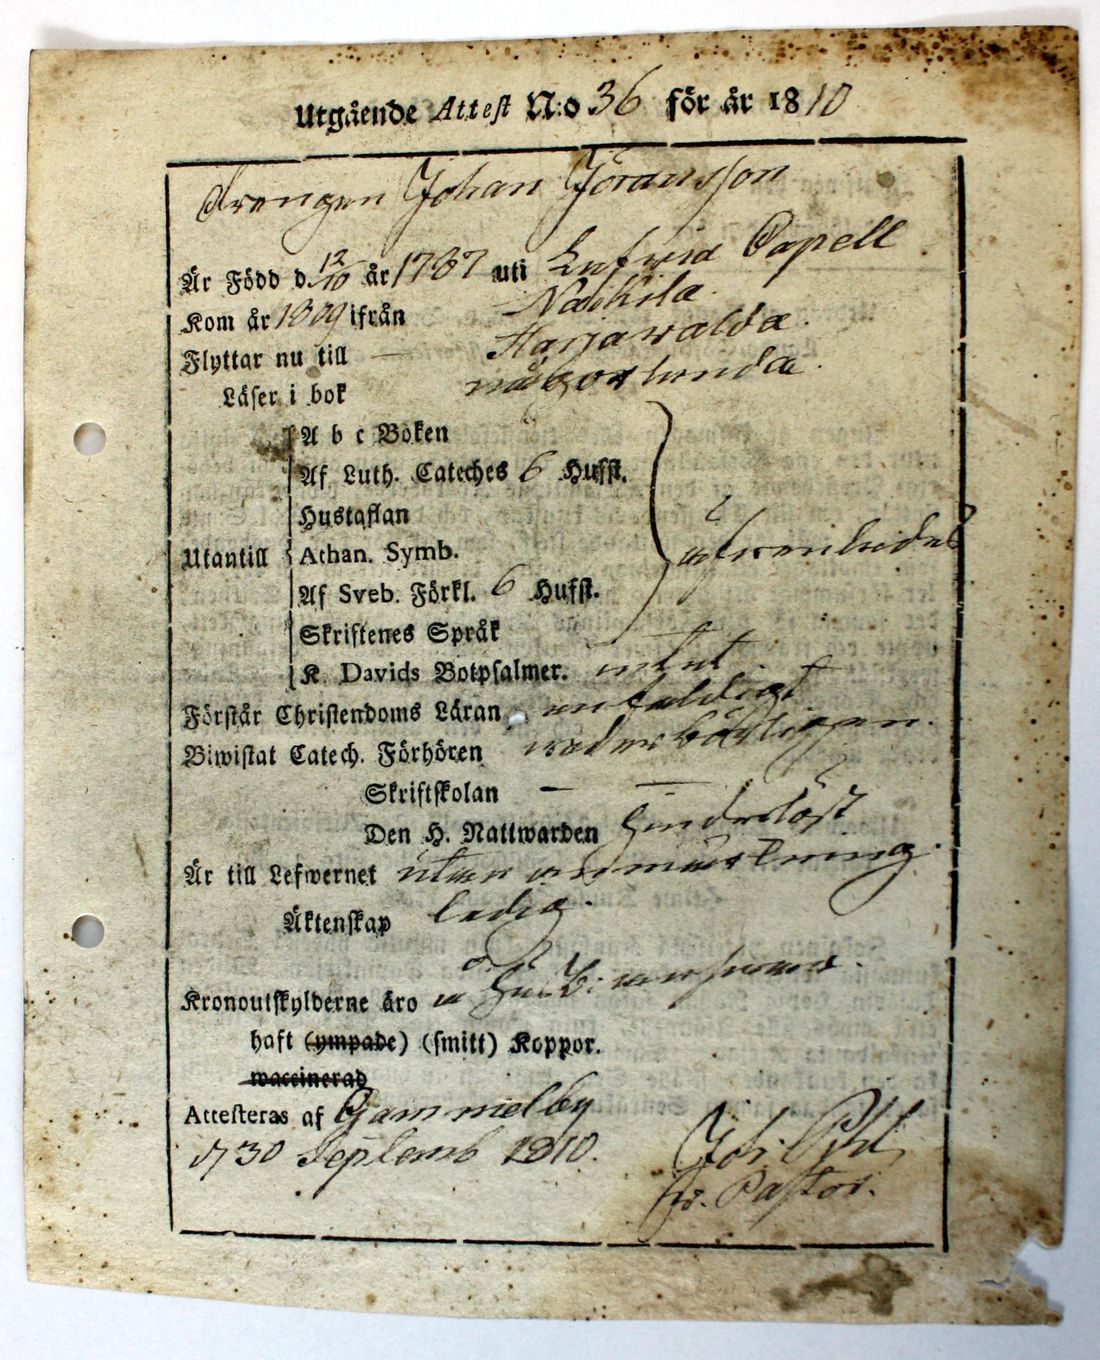 Utgående Attest N:o 36 för år 1810
Drengen Johan Jöransson
Är Född d. 12/10 år 1787 uti Lufvia Capell
Kom år 1809 ifrån Nackila.
Flyttar nu till — Harjawalda.
Läser i bok någorlunda.
A b c Boken
Af Luth. Cateches 6 Hufst.
Hustaflan
Utantill Athan. Symb. afwenledes
Af Sveb. Förkl. 6 Hufst.
Skriftenes Språk
K. Davids Botpsalmer. intet.
Förstår Christendoms Läran enfaldigt
Biwistat Catech. Förhören wederbörligen.
Skriftskolan — —
Den H. Nattwarden hinderlöst
Är till Lefwernet utan anmärkning.
Äktenskap ledig.
Kronoutskylderne äro
haft (ympade) (smitt) Koppor.
waccinerad
Attesteras af Gammelby
d 30 Septemb 1810. Joh.
Pastor.